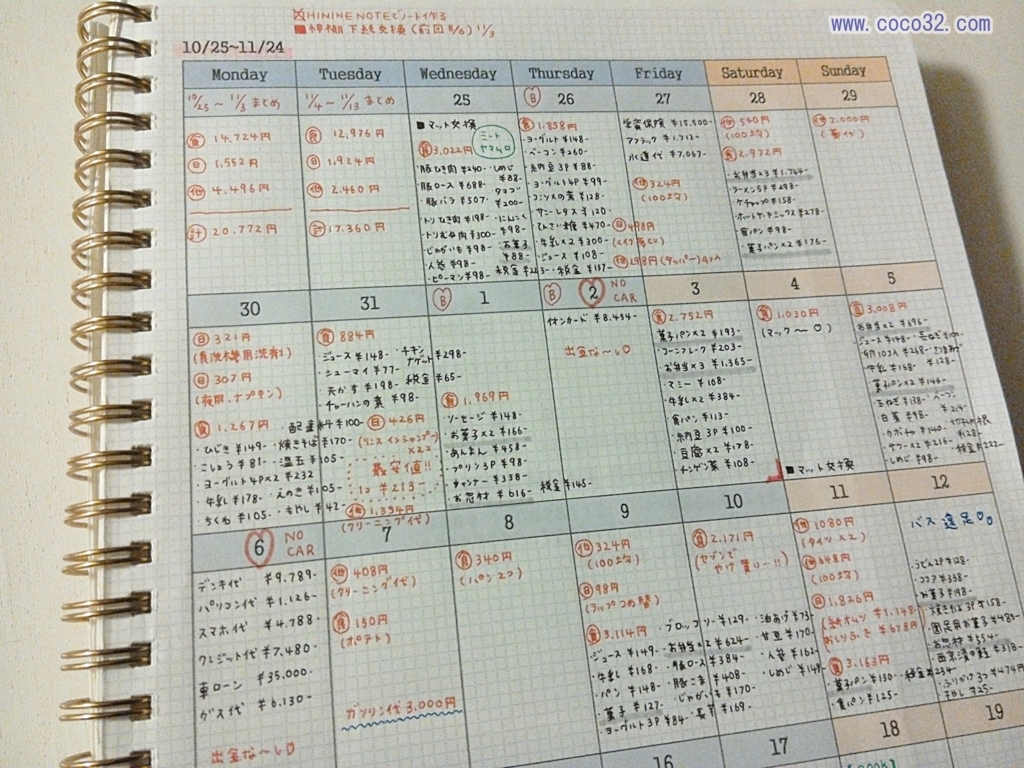 www.coco32.com
HININE NOTEでノート作る
10/25~11/24
Monday Tuesday Wednesday Thursday Friday Saturday Sunday
10/25 ~ 11/3 まとめ
食 14,724円
日 1,552円
他 4,496円
計 20,772円
11/4 ~ 11/13 まとめ
食 12,976円
日 1,924円
他 2,460円
計 17,360円
25
■マット交換
食 3,022円
豚ひき肉 ¥240-
しめじ ¥88-
豚ロース ¥688-
豚バラ ¥507-
タマゴ ¥200-
トリひき肉 ¥198-
にんにく ¥98-
トリむね肉 ¥300-
じゃがいも ¥98-
お菓子 ¥88-
人参 ¥98-
ピーマン ¥98-
B 26
食 1,858円
・ヨーグルト ¥148-
・ベーコン ¥260-
・納豆 3P ¥88-
・ヨーグルト4P ¥99-
・コンソメの素 ¥128-
・サニーレタス ¥120
・てんさい糖 ¥470-
・牛乳×2 ¥300-
・ジュース ¥108-
・税金 ¥137-
27
学資保険 ¥15,500-
アフラック ¥1,712-
水道代 ¥7,067-
他 324円
(100均)
日 498円
他 298円 (タッパー) 4コ入
28
他 540円
(100均)
食 2,972円
・お弁当×3 ¥1,744-
・ラーメン5P ¥298-
・ケチャップ ¥158-
・ホットケーキミックス ¥278-
・食パン ¥98-
・菓子パン×2 ¥176-
29
他 2,000円
30
日 321円
(食洗機専用洗剤)
日 307円
(夜用、ナプキン)
食 1,267円
・ひじき ¥149-
・こしょう ¥81-
・ヨーグルト4P×2 ¥232
・牛乳 ¥178-
・ちくわ ¥105-
・配達料 ¥100-
・焼きそば ¥170-
・温玉 ¥105-
・えのき ¥105-
・もやし ¥42-
31
食 884円
・ジュース ¥148-
・チキンナゲット ¥298-
・シューマイ ¥77-
・天かす ¥198-
・税金 ¥65-
・チャーハンの素 ¥98-
日 426円
(リンスインシャンプー ×2)
最安値!!
1コ ¥213-
他 1,394円
(クリーニング代)
B 1
食 1,969円
・ソーセージ ¥148-
・お菓子×2 ¥166-
・あんまん ¥458-
・プリン3P ¥98-
・チャンナー ¥338-
・お惣菜 ¥616-
税金 ¥145-
B 2 NO CAR
イオンカード ¥8,434-
出金な~し
3
食 2,752円
菓子パン×2 ¥193-
・コーンフレーク ¥203-
・お弁当×3 ¥1,365-
・マミー ¥108-
・牛乳×2 ¥384-
・食パン ¥113-
・納豆 3P ¥100-
・豆腐×2 ¥178-
・チンゲン菜 ¥108-
4
食 1,030円
(マック~♡)
■マット交換
5
食 3,008円
お弁当×2 ¥696-
ジュース ¥148-
卵10コ入 ¥268-
牛乳 ¥168-
菓子パン×2 ¥146-
玉ねぎ ¥138-
ベーコン
白菜 ¥98-
カボチャ ¥140-
ヤクー×2 ¥216-
しめじ ¥98-
税金 ¥222-
6 NO CAR
デンキ代 ¥9,789-
パソコン代 ¥1,126-
スマホ代 ¥4,788-
クレジット代 ¥7,480-
車ローン ¥35,000-
ガス代 ¥6,130-
出金な~し
7
他 408円
(クリーニング代)
食 150円
(ポテト)
ガソリン代 3,000円
8
食 340円
(パン2コ)
9
他 324円
(100均)
日 98円
(ラップつめ替)
食 3,114円
・ジュース ¥149-
・牛乳 ¥168-
・パン ¥148-
・菓子 ¥127-
・ヨーグルト3P ¥84-
・ブロッコリー ¥129-
・お弁当×2 ¥624-
・豚ロース ¥384-
・豚こま ¥408-
・じゃがいも ¥170-
・長芋 ¥169-
・油あげ ¥73-
・甘豆 ¥170-
・人参 ¥162-
・しめじ ¥147-
10
食 2,171円
(セブンでやけ買い~!!)
11
他 1080円
(タイツ×2)
他 648円
(100均)
日 1,826円
(紙オムツ ¥1,148-
おしりふき ¥678円)
食 3,163円
・菓子パン ¥130-
・税金 ¥234-
・食パン ¥125-
12
バス遠足
うどん2P ¥128-
・ココア ¥338-
・お菓子 ¥198-
・焼きそば3P ¥158-
・遠足用お菓子 ¥489-
・お惣菜 ¥554-
・西京漬の鮭 ¥378-
・ふりかけ3コ ¥474円
・もやし ¥25-
16
17
18
19